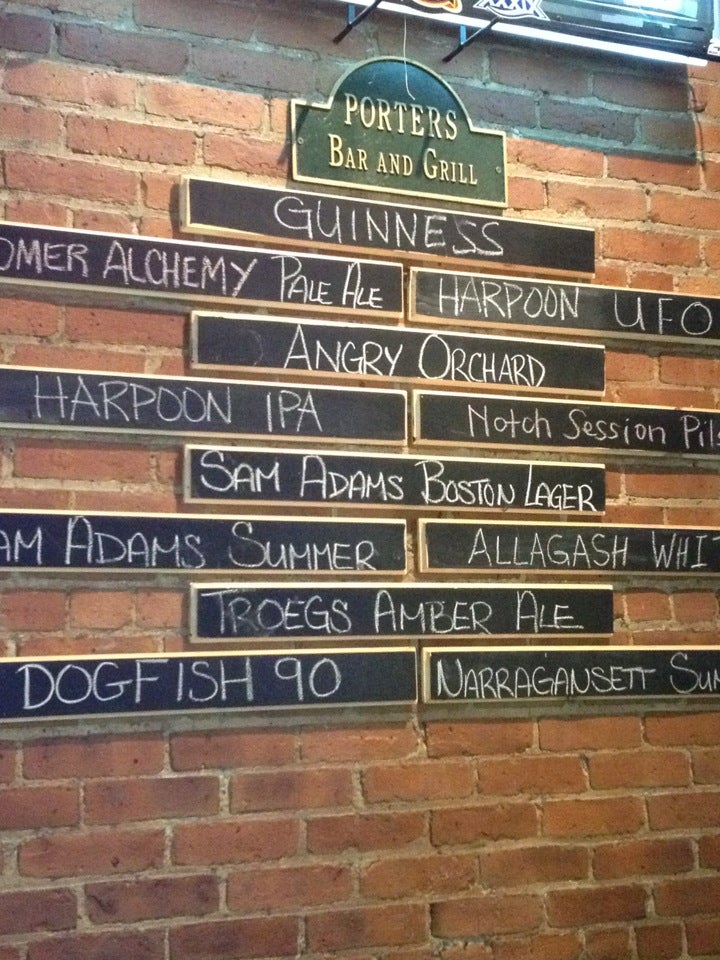 XXXIX
PORTERS
BAR AND GRILL
GUINNESS
OMER ALCHEMY PALE ALE
HARPOON UFO
ANGRY ORCHARD
HARPOON IPA
Notch Session Pils
SAM ADAMS BOSTON LAGER
AM ADAMS SUMMER
ALLAGASH WHIT
TROEGS AMBER ALE
DOGFISH 90
NARRAGANSETT SUM